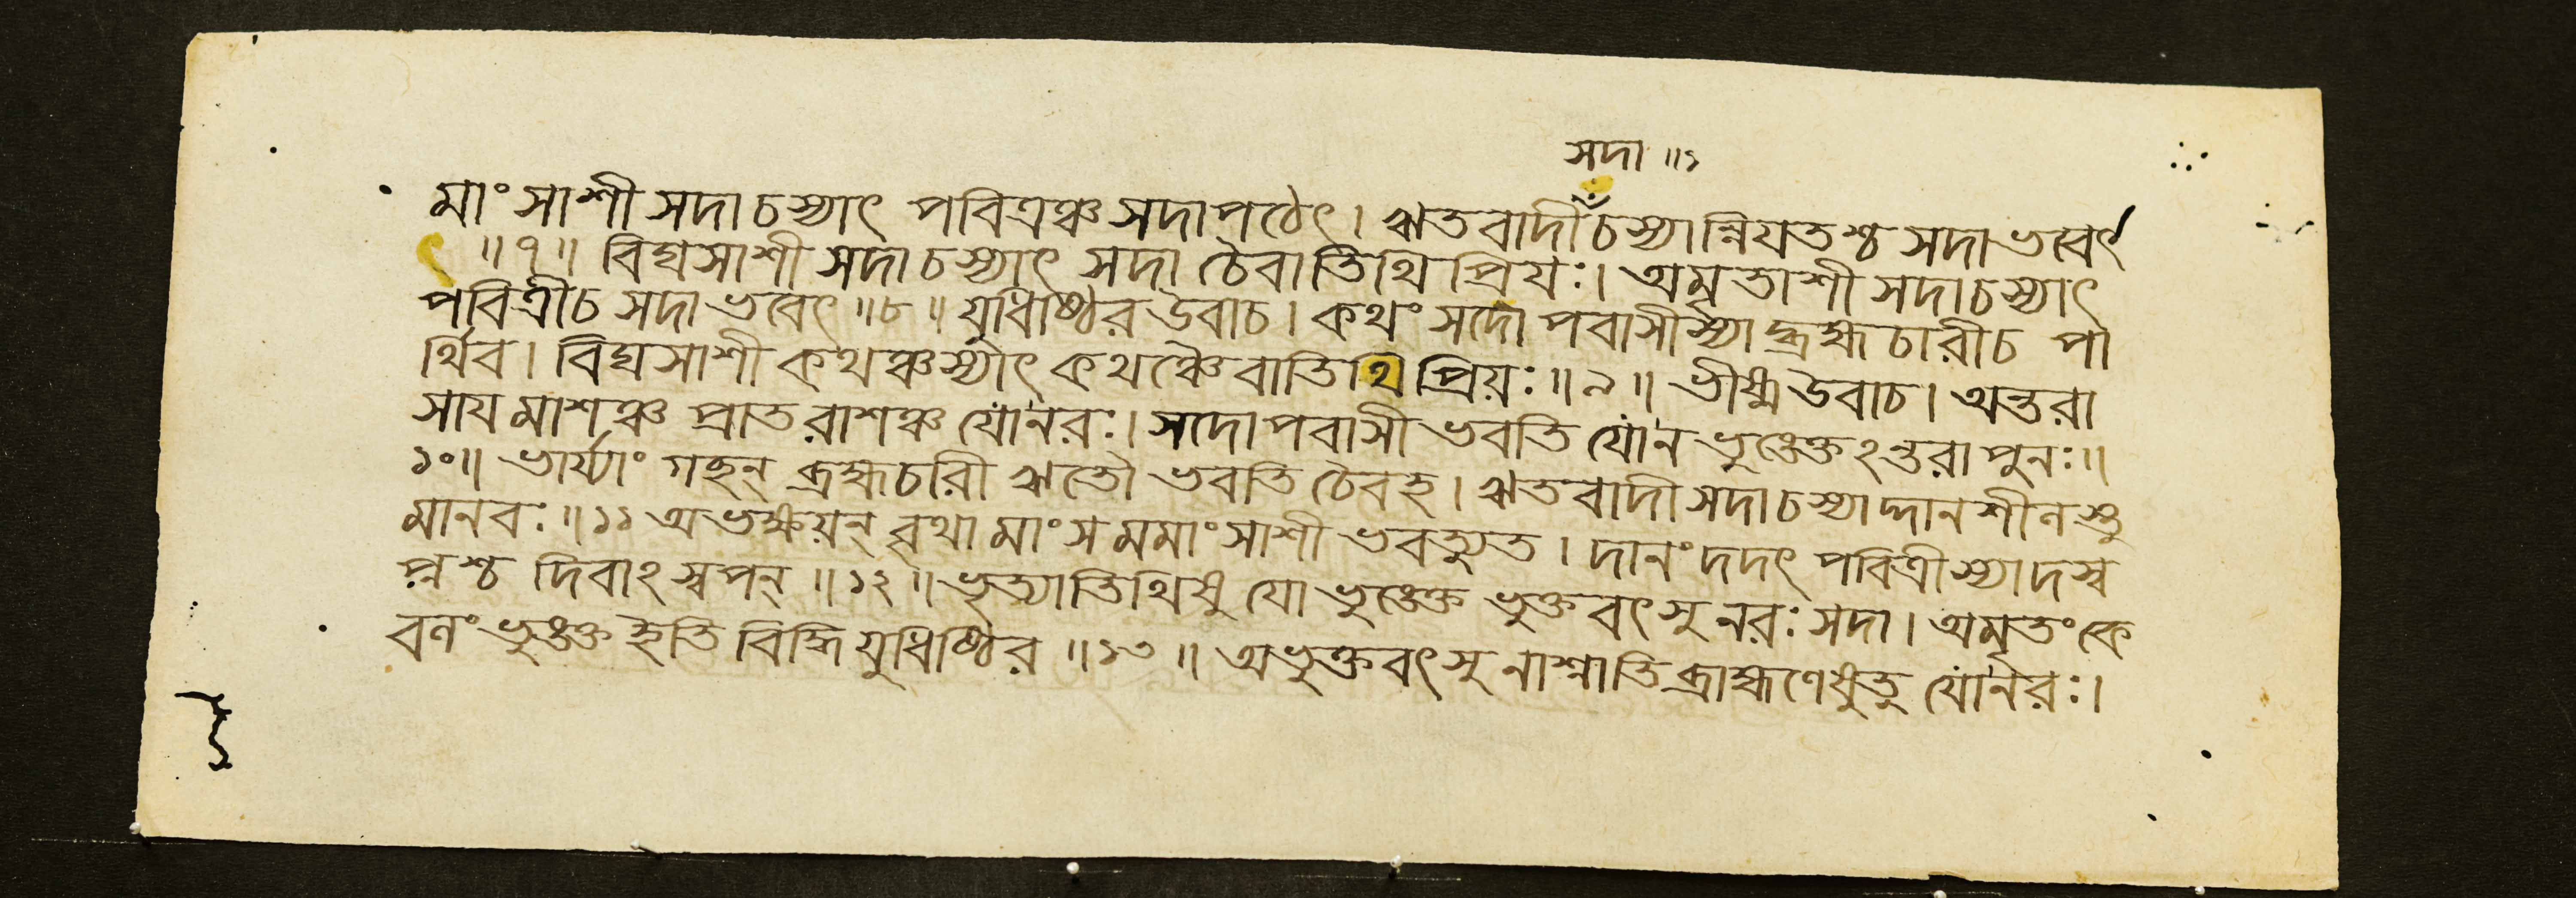 সদা ॥১
মাংসাশী সদাচস্যাৎ পবিত্রঞ্চ সদাপঠেৎ। ঋতবাদীচস্যান্নিযতশ্চ সদাভবেৎ
॥৭॥ বিঘসাশী সদাচস্যাৎ সদা চৈবাতিথি প্রিযঃ। অমৃতাশী সদাচস্যাৎ
পবিত্রীচ সদাভবেৎ ॥৮॥ যুধিষ্ঠির উবাচ। কথং সদোপবাসীস্যাদ্ব্রহ্মচারীচ পা
র্থিব। বিঘসাশী কথঞ্চস্যাৎ কথঞ্চৈবাতিথিপ্রিয়ঃ ॥৯॥ ভীষ্ম উবাচ। অন্তরা
সাযমাশঞ্চ প্রাতরাশঞ্চ যোনরঃ। সদোপবাসী ভবতি যোন ভুঙ্ক্তেঽন্তরাপুনঃ॥
১০॥ ভার্য্যাং গছন্ ব্রহ্মচারী ঋতৌ ভবতি চৈবহ। ঋতবাদী সদাচস্যাদ্দানশীনশ্তু
মানবঃ ॥১১ অভক্ষয়ন্ বৃথামাংসমমাংসাশী ভবত্যুত। দানং দদৎ পবিত্রীস্যাদস্ব
প্নশ্চ দিবাঽস্বপন্ ॥১২॥ ভৃত্যাতিথিষু যো ভুঙ্ক্তে ভুক্তবৎসু নরঃ সদা। অমৃতং কে
বনং ভুঙক্ত ইতি বিদ্ধি যুধিষ্ঠির ॥১৩॥ অভুক্তবৎসু নাশ্নাতি ব্রাহ্মণেষুতু যোনরঃ।